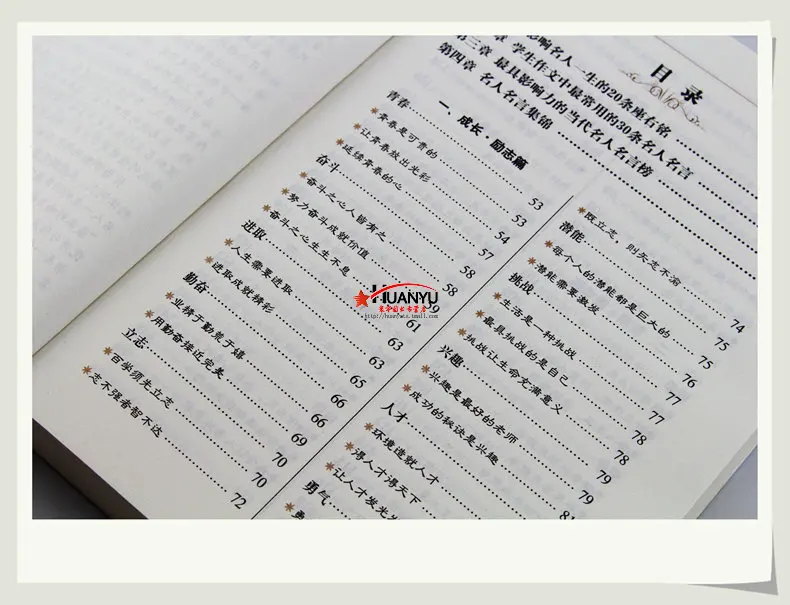 目 录
影响名人一生的20条座右铭
章 学生作文中最常用的30条名人名言
第三章 最具影响力的当代名人名言榜
第四章 名人名言集锦
一、成长·励志篇
青春 53
*青春是可贵的 53
*让青春放出光彩 54
*延续青春的心 57
奋斗 58
*奋斗之心人皆有之 58
*努力奋斗成就价值 59
*奋斗之心生生不息 61
进取 63
*人生需要进取 63
*进取成就精彩 65
勤奋 66
*业精于勤荒于嬉 66
*用勤奋接近完美 69
立志 70
*百学须先立志 70
*志不强者智不达 72
*既立志，则矢志不渝 74
潜能 75
*每个人的潜能都是巨大的 75
*潜能需要激发 76
挑战 77
*生活是一种挑战 77
*最具挑战的是自己 78
*挑战让生命充满意义 78
兴趣 79
*兴趣是最好的老师 79
*成功的秘诀是兴趣 81
人才
*环境造就人才
*得人才得天下
*让人才发
勇气
HUANYU